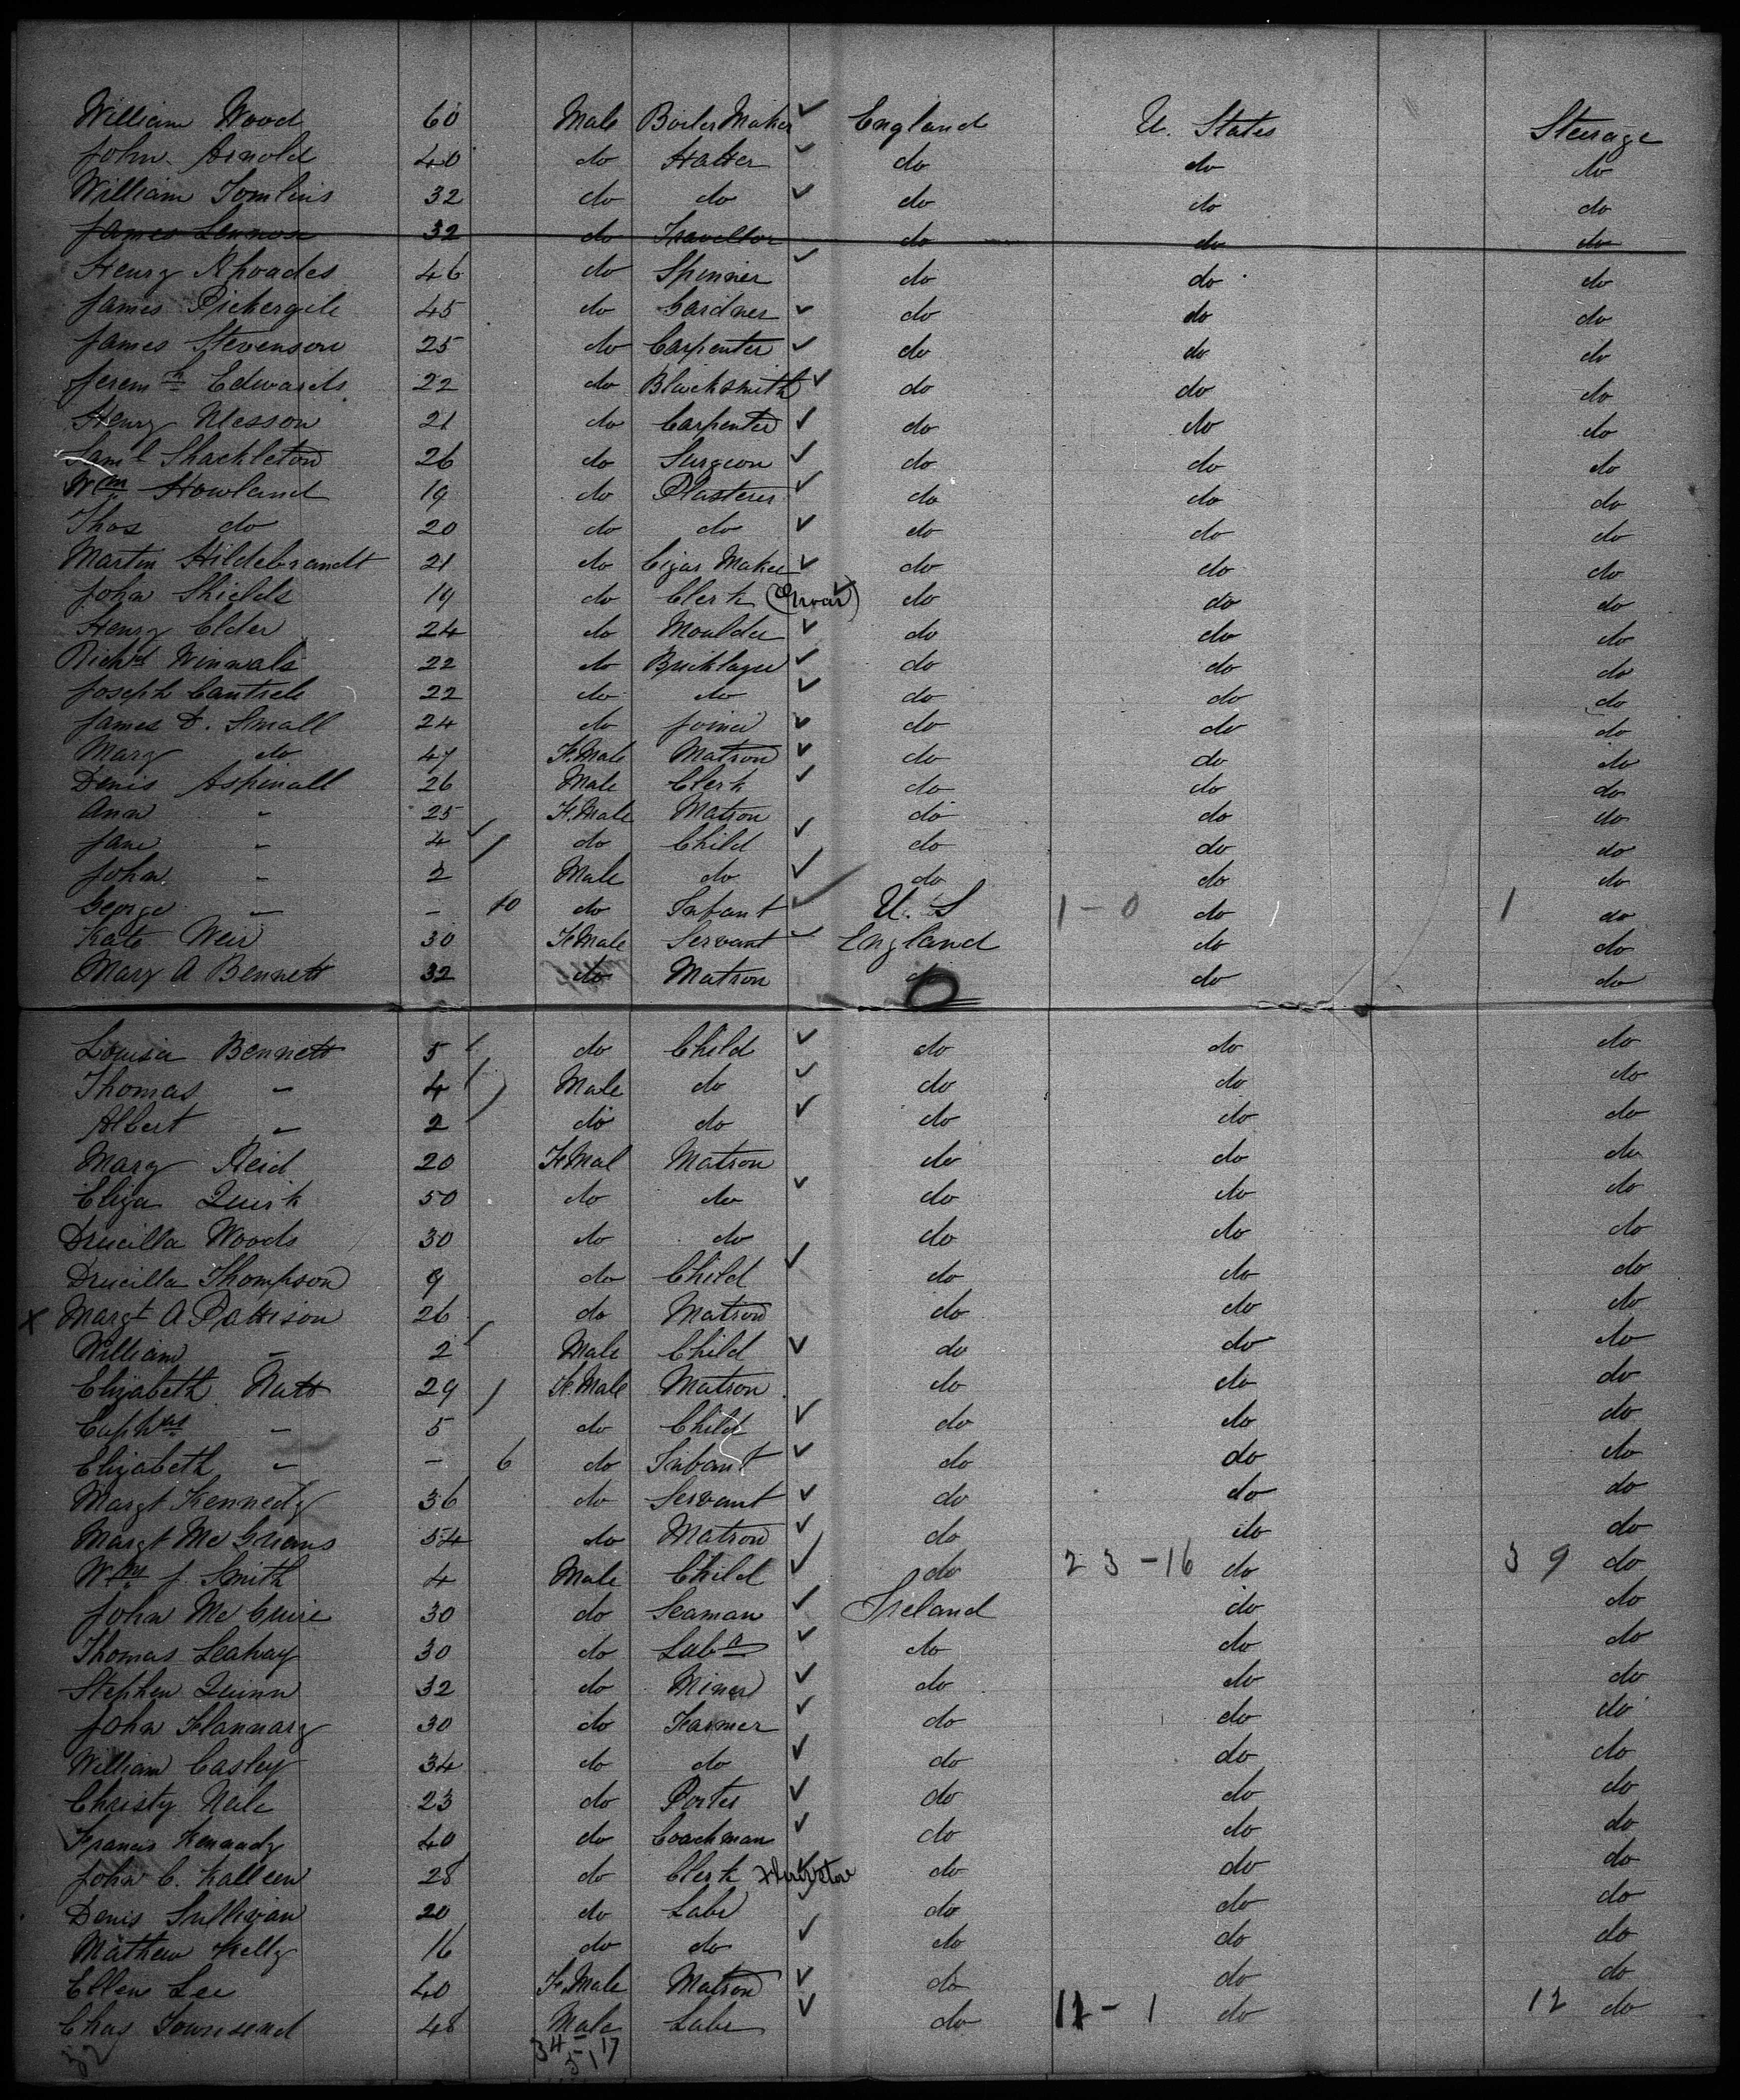 William Wood 60 Male Boiler Maker ✓ England U. States Steerage
John Arnold 40 do Hatter ✓ do do do
William Tomlins 32 do do ✓ do do do
James Lennox 32 do Traveller do do do
Henry Rhoades 46 do Spinner ✓ do do do
James Pickergile 45 do Gardner ✓ do do do
James Stevenson 25 do Carpenter ✓ do do do
Jeremh Edwards 22 do Blacksmith ✓ do do do
Henry Messon 21 do Carpenter ✓ do do do
Saml Shackleton 26 do Surgeon ✓ do do do
Wm Howland 19 do Plasterer ✓ do do do
Thos do 20 do do ✓ do do do
Martin Hildebrandt 21 do Cigar Maker ✓ do do do
John Shields 19 do Clerk ✓ do do do
Henry Elder 24 do Moulder ✓ do do do
Richd Winwals 22 do Bricklayer ✓ do do do
Joseph Cantrele 22 do do ✓ do do do
James D. Small 24 do Joiner ✓ do do do
Mary do 47 FeMale Matron ✓ do do do
Denis Aspinall 26 Male Clerk ✓ do do do
Ann " 25 FeMale Matron do do do
Jane " 4 do Child ✓ do do do
John " 2 Male do ✓ do do do
George " - 10 do Infant ✓ U. S 1-0 do 1 do
Kate Weir 30 FeMale Servant England do do
Mary A Bennett 32 do Matron do do do
Louisa Bennett 5 do Child ✓ do do do
Thomas " 4 Male do ✓ do do do
Albert " 2 do do ✓ do do do
Mary Reid 20 FeMal Matron do do do
Eliza Quirk 50 do do ✓ do do do
Drucilla Woods 30 do do do do do
Drucilla Thompson 9 do Child ✓ do do do
x Margt A Pattison 26 do Matron do do do
William " 2 Male Child ✓ do do do
Elizabeth Nutt 29 FeMale Matron do do do
Cuphas " 5 do Child ✓ do do do
Elizabeth " - 6 do Infant ✓ do do do
Margt Kennedy 36 do Servant ✓ do do do
Margt Mc 54 do Matron ✓ do do do
Wm J. Smith 4 Male Child ✓ do 23-16 do 39 do
John Mc Guire 30 do Seaman ✓ Ireland do do
Thomas Leahay 30 do Labr ✓ do do do
Stephen Quinn 32 do Miner ✓ do do do
John Flannary 30 do Farmer ✓ do do do
William Casley 34 do do ✓ do do do
Christy Neile 23 do Porter ✓ do do do
Francis Kennedy 40 do Coachman ✓ do do do
John C. Kalleen 28 do Clerk do do do
Denis Sullivan 20 do Labr do do do
Mathew Kelly 16 do do ✓ do do do
Ellen Lee 40 FeMale Matron ✓ do do do
Chas Townsend 48 Male Labr ✓ do 12-1 do 12 do
52 34-17
51